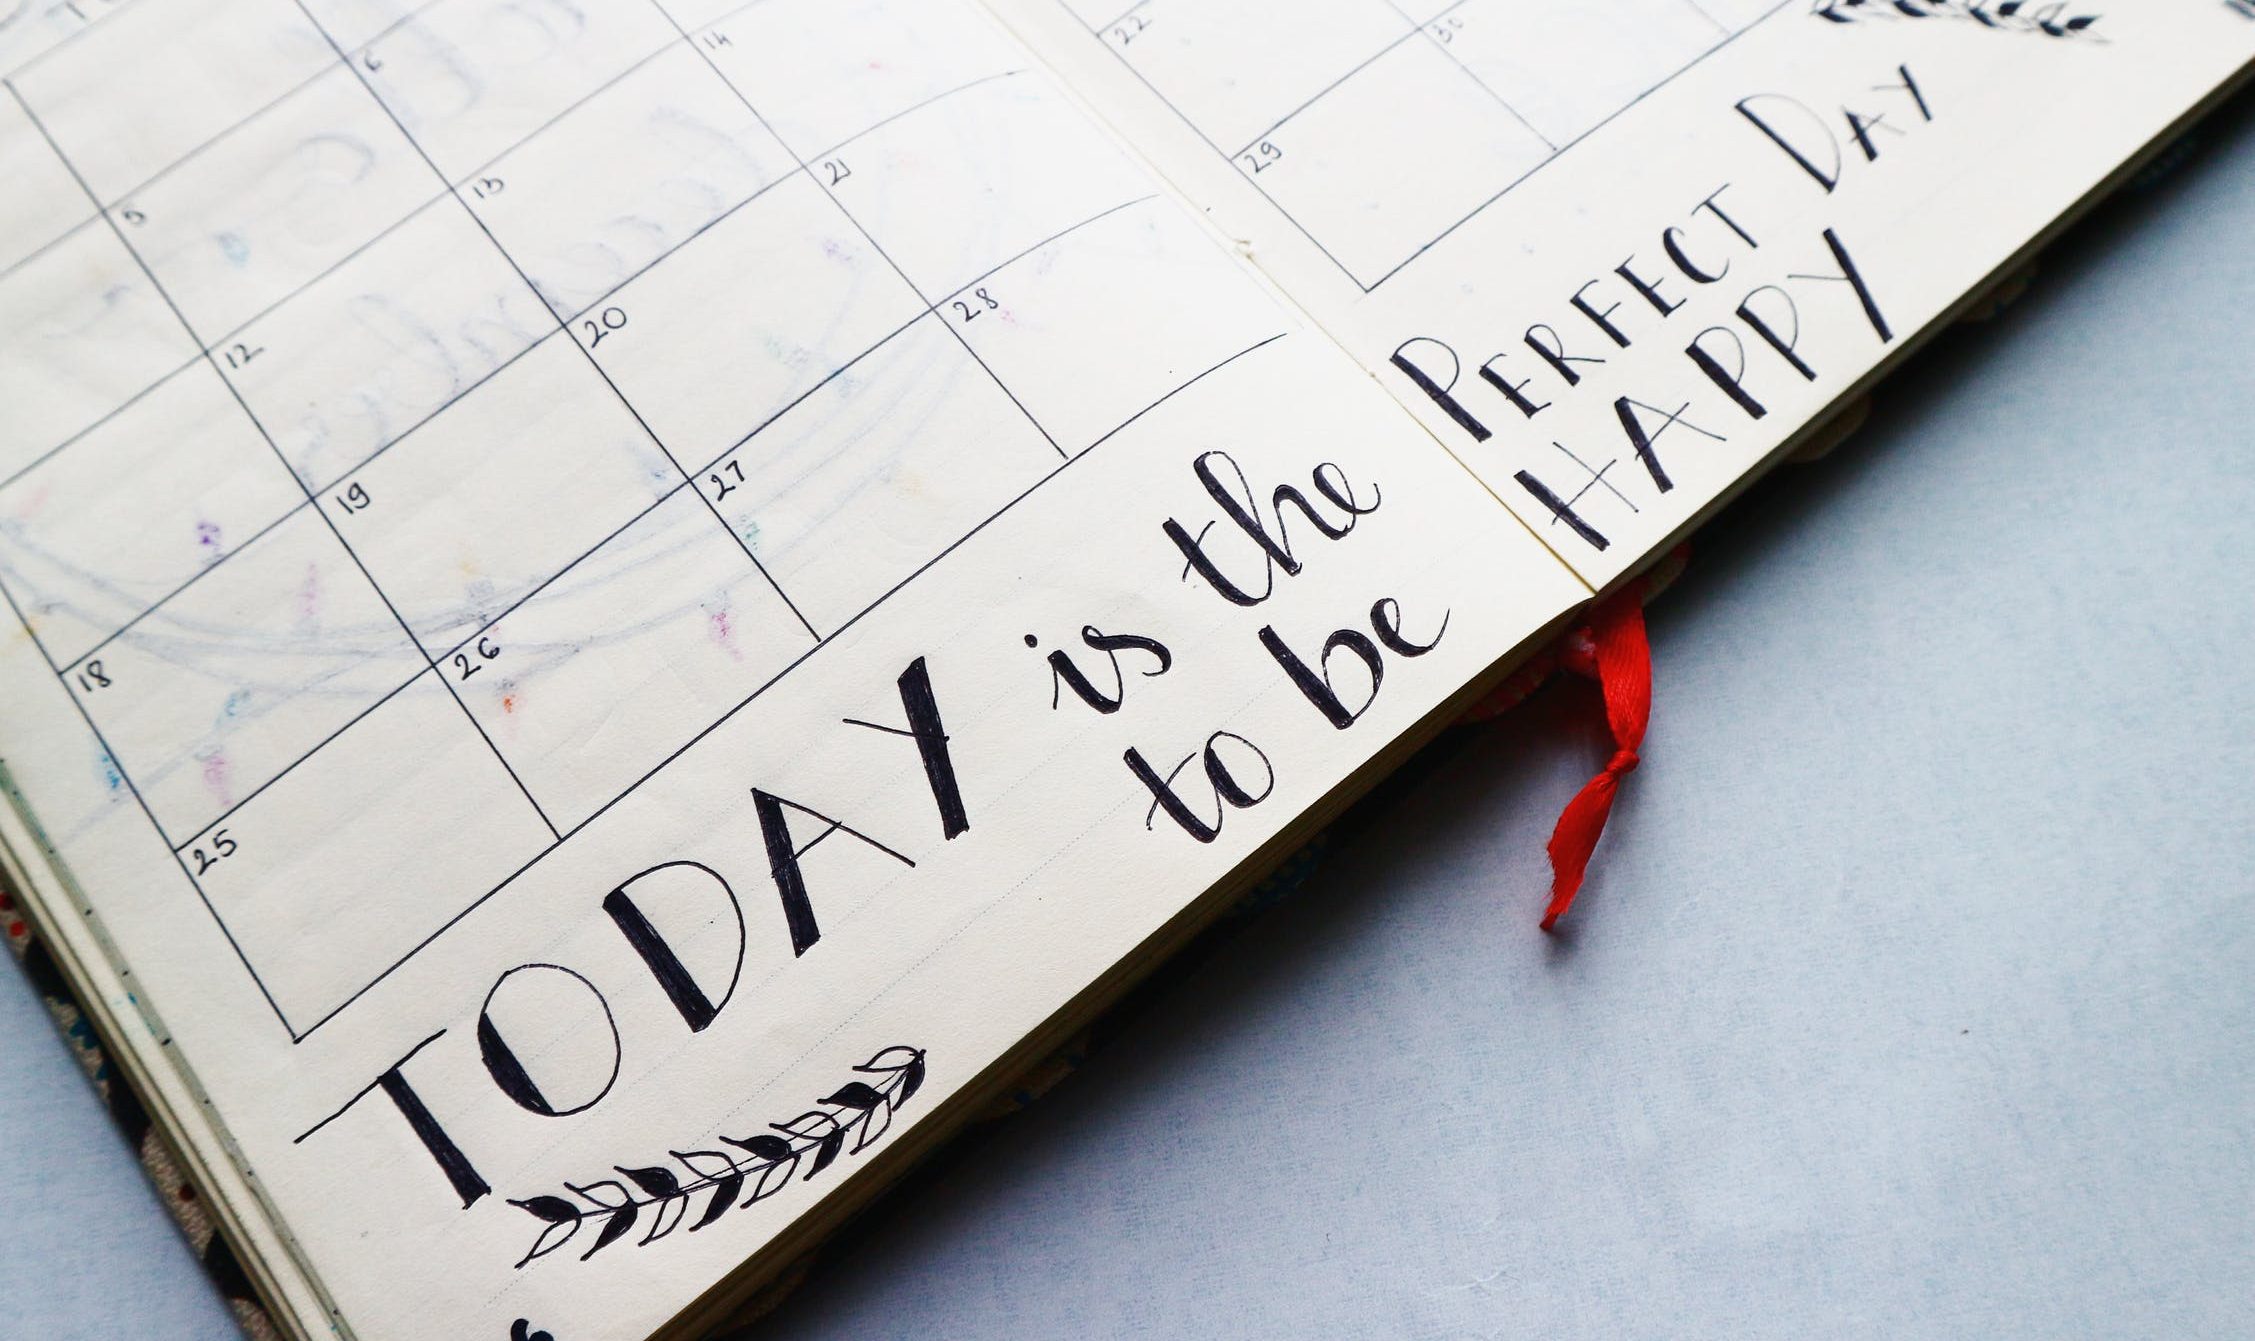 5 6
12 13 14
18 19 20 21 22
25 26 27 28 29 30
TODAY is the PERFECT DAY
to be HAPPY